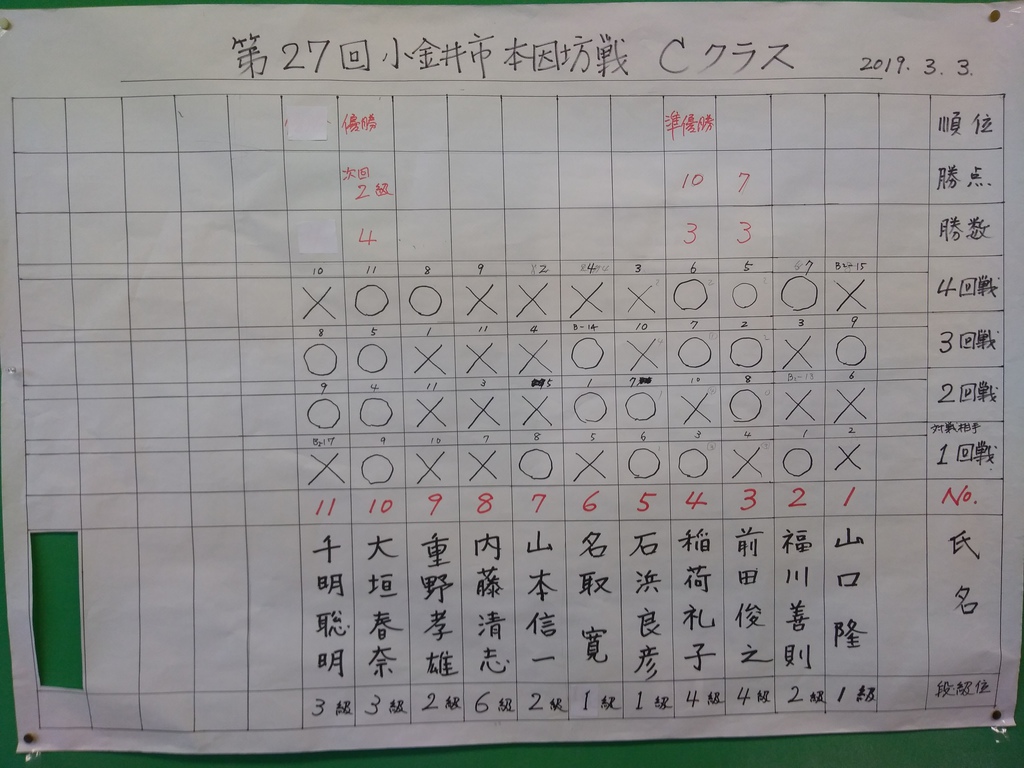 第27回小金井市本因坊戦 Cクラス
2019.3.3.
優勝 準優勝 順位
次回2級 10 7 勝点
4 3 3 勝数
10 11 8 9 2 4 3 6 5 7 15
× ○ ○ × × × × ○ ○ ○ × 4回戦
8 5 1 11 4 B-14 10 7 2 3 9
○ ○ × × × ○ × ○ ○ × ○ 3回戦
9 4 11 3 5 1 7 10 8 6
○ ○ × × × ○ ○ × ○ × × 2回戦
17 9 10 7 8 5 6 3 4 1 2 対戦相手
× ○ × × ○ × ○ ○ × ○ × 1回戦
11 10 9 8 7 6 5 4 3 2 1 No.
千明聡明 大垣春奈 重野孝雄 内藤清志 山本信一 名取寛 石浜良彦 稲荷礼子 前田俊之 福川善則 山口隆 氏名
3級 3級 2級 6級 2級 1級 1級 4級 4級 2級 1級 段級位